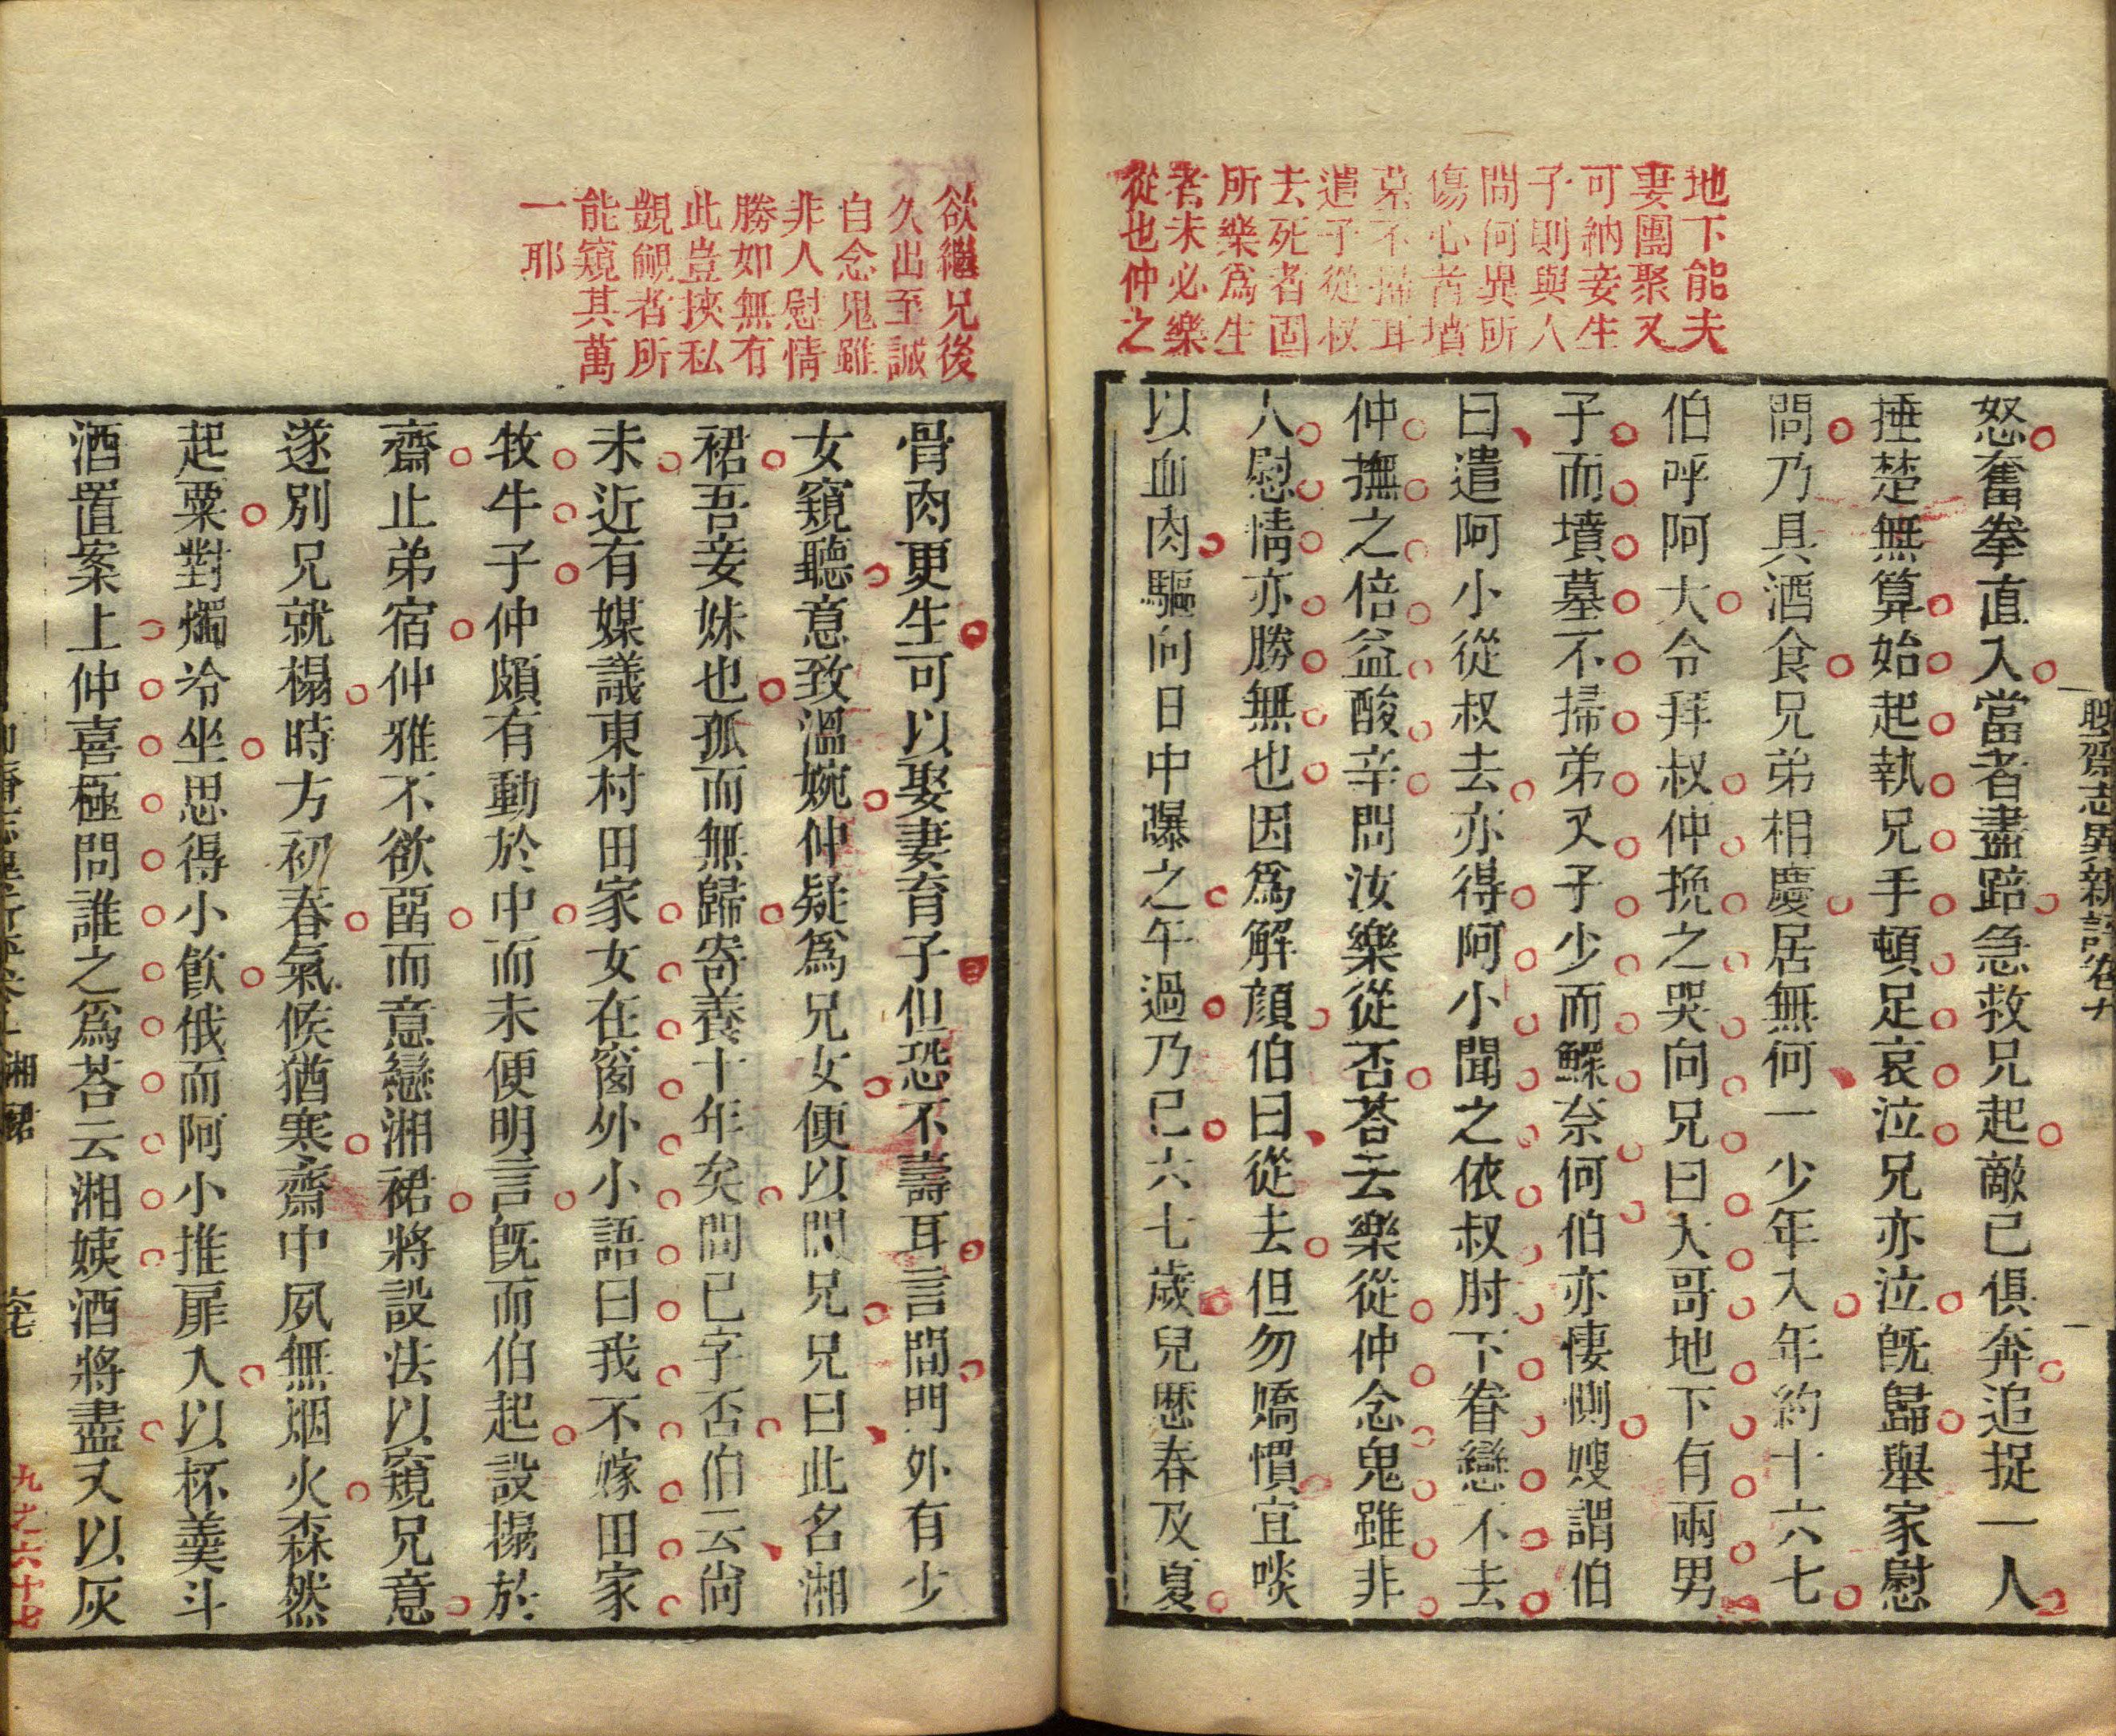 聊齋志異新評卷九
地下能夫
妻團聚又
可納妾生
子則與人
間何異所
傷心者墳
墓不掃耳
遣子從叔
去死者固
所樂爲生
者未必樂
從也仲之
怒奮拳直入當者盡踣急救兄起敵已俱奔追捉一人
捶楚無算始起執兄手頓足哀泣兄亦泣旣歸舉家慰
問乃具酒食兄弟相慶居無何一少年入年約十六七
伯呼阿大令拜叔仲挽之哭向兄曰大哥地下有兩男
子而墳墓不掃弟又子少而鰥奈何伯亦悽惻嫂謂伯
曰遣阿小從叔去亦得阿小聞之依叔肘下眷戀不去
仲撫之倍益酸辛問汝樂從否荅云樂從仲念鬼雖非
人慰情亦勝無也因爲解顏伯曰從去但勿嬌慣宜啖
以血肉驅向日中曝之午過乃已六七歲兒歷春及夏
欲繼兄後
久出至誠
自念鬼雖
非人慰情
勝如無有
此豈挾私
覬覦者所
能窺其萬
一耶
骨肉更生可以娶妻育子但恐不壽耳言間門外有少
女窺聽意致溫婉仲疑爲兄女便以問兄兄曰此名湘
裙吾妾妹也孤而無歸寄養十年矣問已字否伯云尚
未近有媒議東村田家女在窗外小語曰我不嫁田家
牧牛子仲頗有動於中而未便明言旣而伯起設榻於
齋止弟宿仲雅不欲畱而意戀湘裙將設法以窺兄意
遂別兄就榻時方初春氣候猶寒齋中夙無烟火森然
起粟對燭冷坐思得小飮俄而阿小推扉入以杯羹斗
酒置案上仲喜極問誰之爲荅云湘姨酒將盡又以灰
湘裙
六七
九才六十七